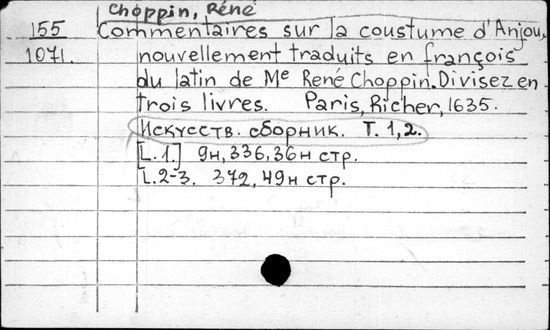 Choppin, Réné
155 Commentaires sur la coustume d'Anjou,
1071. nouvellement traduits en françois
du latin de Me René Choppin. Divisez en
trois livres. Paris, Richer, 1635.
Искусств. сборник. Т. 1, 2.
[L. 1.] 9н, 336, 36н стр.
L. 2-3. 372, 49н стр.